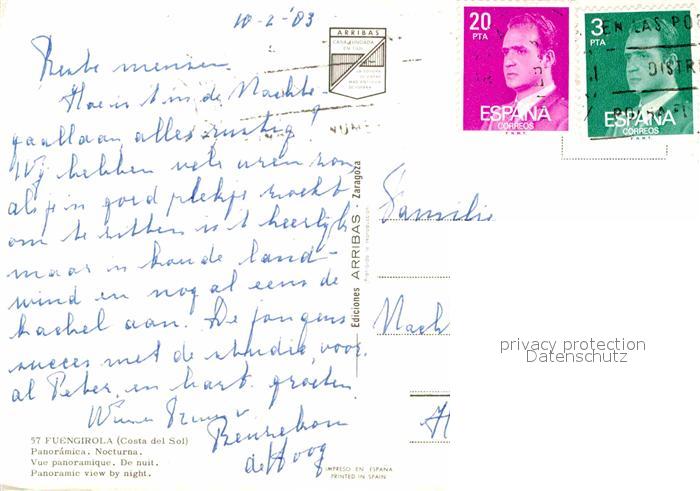 10-2-'83
Beste mensen
Hoe is 't in de Nachte-
gaallaan, alles rustig?
Wij hebben vele uren zon,
als je 'n goed plekje zoekt
om te zitten is 't heerlijk
maar 'n koude land-
wind en nog al eens de
kachel aan. De jongens
succes met de studie, voor
al Peter, en hart. groeten
de Hoog
57 FUENGIROLA (Costa del Sol)
Panorámica. Nocturna.
Vue panoramique. De nuit.
Panoramic view by night.
ARRIBAS
CASA FUNDADA
Ediciones ARRIBAS - Zaragoza
Prohibida la reproducción
IMPRESO EN ESPAÑA
PRINTED IN SPAIN
20
PTA
ESPAÑA
CORREOS
F.N.M.T.
3
PTA
ESPAÑA
CORREOS
F.N.M.T.
EN LAS PO
DISTRI
Familie
Nach
privacy protection
Datenschutz